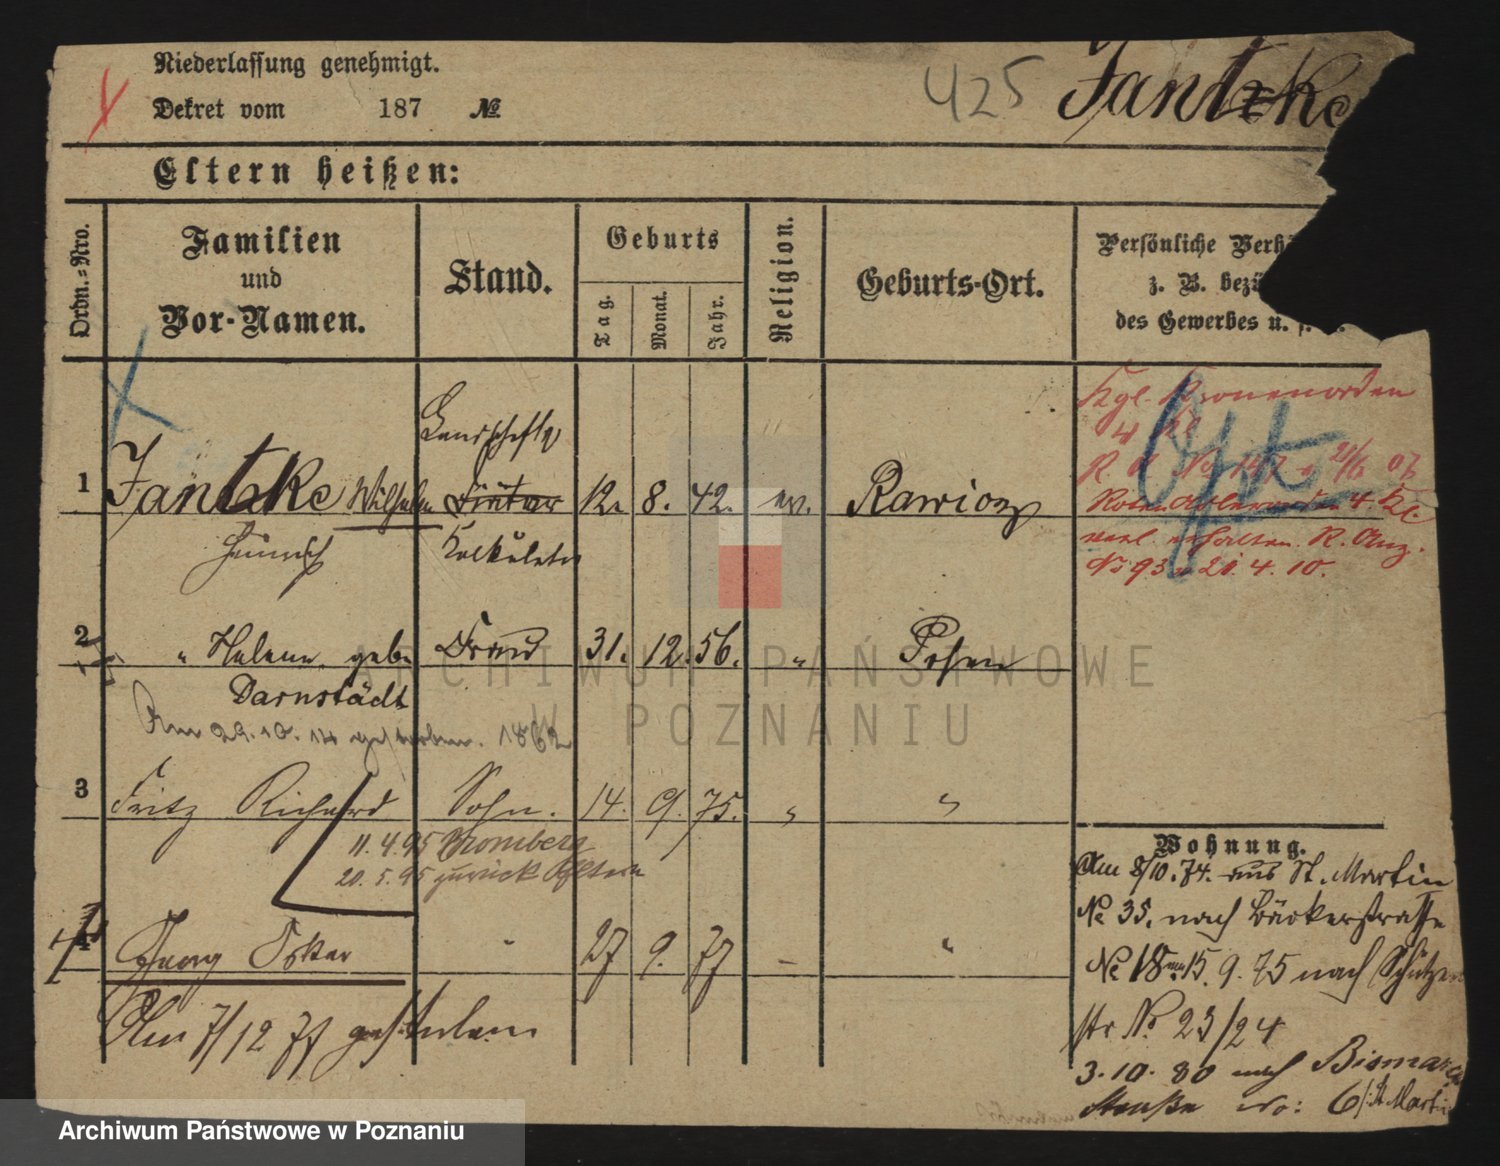 Niederlassung genehmigt.
425 Jantzke
Dekret vom 187 №
Eltern heißen:
Ordn.=Nro.
Familien
und
Vor-Namen.
Stand.
Geburts
Tag.
Monat.
Jahr.
Religion.
Geburts-Ort.
Persönliche Verh
z. B. bezü
des Gewerbes u. s.
Kgl. Kronenorden
4 Kl
1 Jantzke Wilhelm
Heinrich
Landschafts
Kalkulator
12. 8. 42. ev. Rawicz
Roter Adlerorden 4. Kl
verl. erhalten R. Anz.
No 93 v 21. 4. 10.
2 " Helene geb. Frau 31. 12. 56. " Posen
Darnstädt
Am 29.10.14 gestorben. 1862
3 Fritz Richard Sohn. 14. 9. 75. " "
11.4.95 Bromberg
20.5.95 zurück Eltern
4 Georg Oskar " 27 9. 77 – "
Am 7/12 77 gestorben
Wohnung.
Am 8/10.74. aus St. Martin
No 35. nach Bäckerstraße
No 18 15.9.75 nach Schützen
str No 23/24
3.10.80 nach Bismarck
Straße No: 6/St Martin
ARCHIWUM PAŃSTWOWE
W POZNANIU
Archiwum Państwowe w Poznaniu